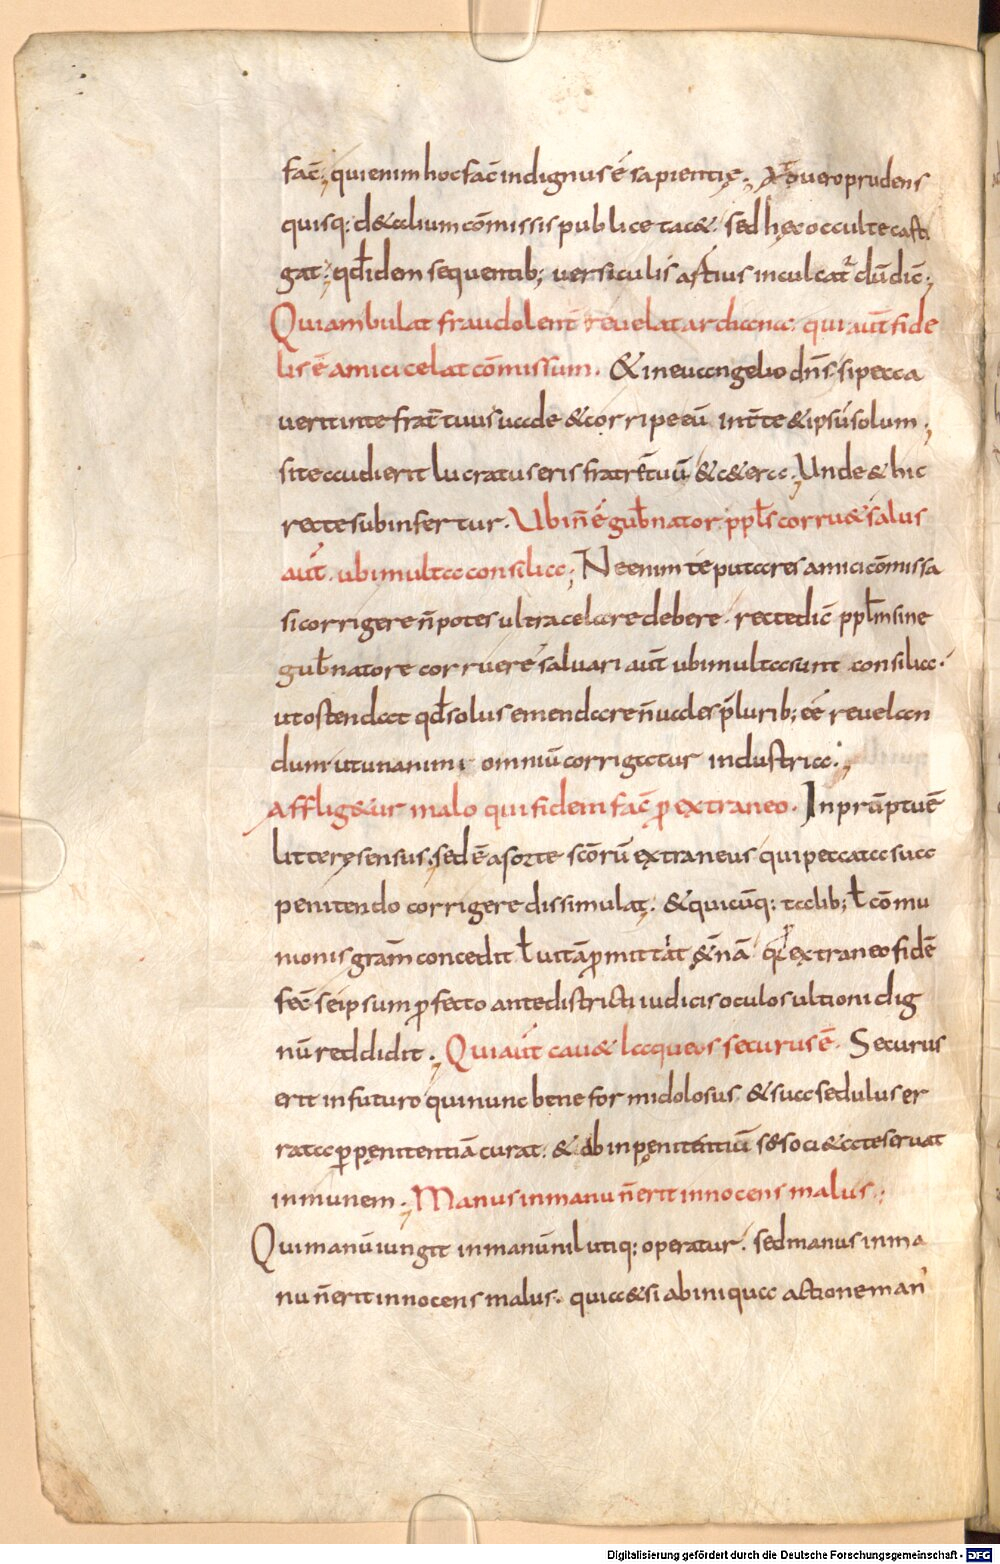 fac̄; qui enim hoc fac̄ indignus ē sapientię; Xp̄o uero prudens
quisq: d&alium cōmissis publice tac&. sed hęc occulte casti
gat; qd̄ idem sequentib; uersiculis astius inculcatr̄ dūdic̄;
Qui ambulat fraudolent̄ reuelat archana. qui aut̄ fide
lis ē amici celat cōmissum. & in euangelio dn̄s. si pecca
uerit in te frat̄ tuus uade & corripe eū int̄ te & ipsū solum;
si te audierit lucratus eris fratrē tuū &c&era; Unde & hic
recte subinfertur. Ubi n̄ ē gub̄nator ppl̄s corru& salus
aut̄. ubi multa consilia; Ne enim te putares amici cōmissa
si corrigere n̄ potes ultra celare debere. recte dic̄ ppl̄m sine
gub̄natore corruere saluari aut̄ ubi multa sunt consilia.
ut ostendat qd̄ solus emendare n̄ uales plurib; eē reuelan
dum. ut unanimi omniū corrigatur industria;
Afflig&ur malo qui fidem fac̄ p extraneo. In prūptu ē
litterę sensus; sed ē a sorte scōrū extraneus qui peccata sua
penitendo corrigere dissimulat. & quicūq: talib; ł cōmu
nionis gram̄ concedit ł uitā pmittat ęt̄nā qr̄ extraneo fidē
fec̄ se ipsum pfecto ante districti iudicis oculos ultioni dig
nū reddidit; Qui aut̄ cau& laqueos securus ē. Securus
erit in futuro qui nunc bene formidolosus. & sua sedulus er
rata p pęnitentiā curat. & ab inpęnitentiū s& soci&ate seruat
inmunem; Manus in manu n̄ erit innocens malus;
Qui manū iungit in manū nil utiq: operatur. sed manus in ma
nu n̄ erit innocens malus. quia & si ab iniqua actione man
Digitalisierung gefördert durch die Deutsche Forschungsgemeinschaft - DFG